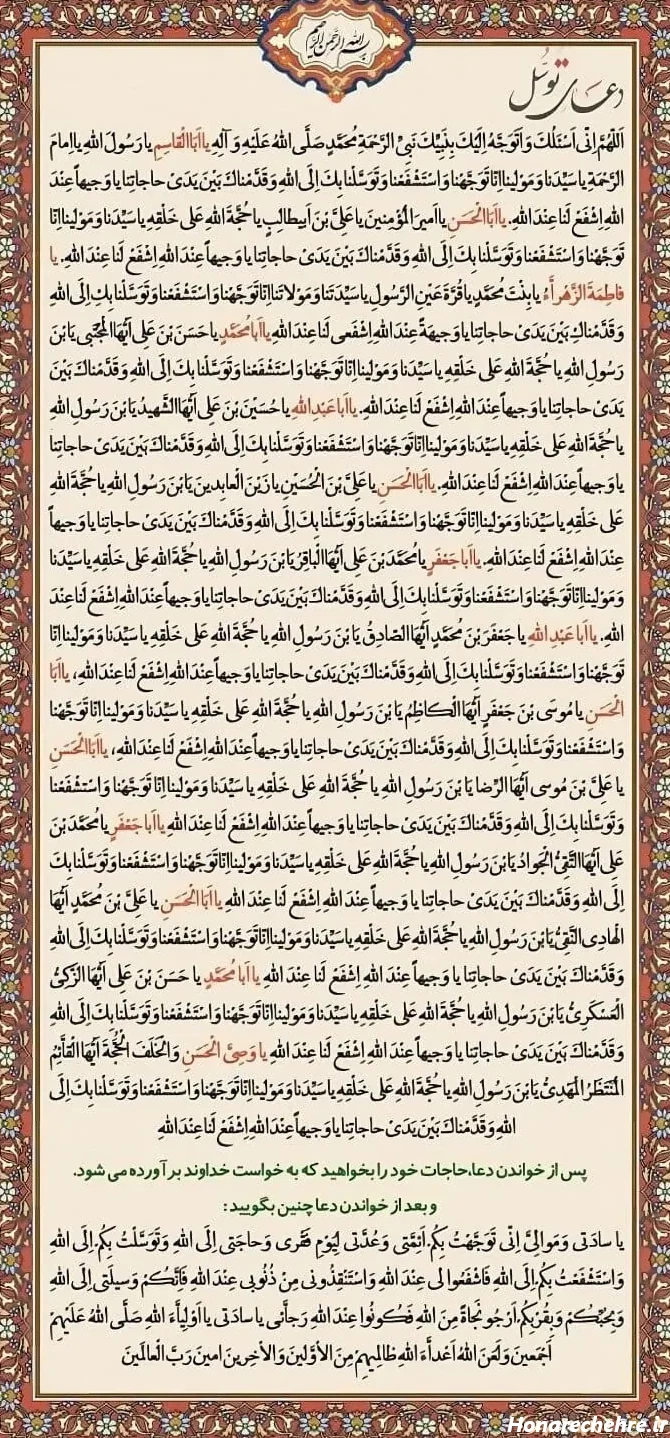 بسم الله الرحمن الرحیم
دعای توسّل
اَللّٰهُمَّ اِنّی اَسْئَلُكَ وَ اَتَوَجَّهُ اِلَیْكَ بِنَبِیِّكَ نَبِیِّ الرَّحْمَةِ مُحَمَّدٍ صَلَّی اللهُ عَلَیْهِ وَ آلِهِ یا اَبَاالْقاسِمِ یا رَسُولَ اللهِ یا اِمامَ
الرَّحْمَةِ یا سَیِّدَنا وَ مَوْلینا اِنّا تَوَجَّهْنا وَاسْتَشْفَعْنا وَ تَوَسَّلْنا بِكَ اِلَی اللهِ وَ قَدَّمْناكَ بَیْنَ یَدَیْ حاجاتِنا یا وَجیهاً عِنْدَ
اللهِ اِشْفَعْ لَنا عِنْدَ اللهِ. یا اَبَا الْحَسَنِ یا اَمیرَ الْمُؤْمِنینَ یا عَلِیَّ بْنَ اَبیطالِبٍ یا حُجَّةَ اللهِ عَلی خَلْقِهِ یا سَیِّدَنا وَ مَوْلینا اِنّا
تَوَجَّهْنا وَ اسْتَشْفَعْنا وَ تَوَسَّلْنا بِكَ اِلَی اللهِ وَ قَدَّمْناكَ بَیْنَ یَدَیْ حاجاتِنا یا وَجیهاً عِنْدَ اللهِ اِشْفَعْ لَنا عِنْدَ اللهِ. یا
فاطِمَةَ الزَّهْراَّءُ یا بِنْتَ مُحَمَّدٍ یا قُرَّةَ عَیْنِ الرَّسُولِ یا سَیِّدَتَنا وَ مَوْلاتَنا اِنّا تَوَجَّهْنا وَاسْتَشْفَعْنا وَ تَوَسَّلْنا بِكِ اِلَی اللهِ
وَ قَدَّمْناكِ بَیْنَ یَدَیْ حاجاتِنا یا وَجیهَةً عِنْدَ اللهِ اِشْفَعی لَنا عِنْدَ اللهِ یا اَبا مُحَمَّدٍ یا حَسَنَ بْنَ عَلِیٍّ اَیُّهَا الْمُجْتَبی یَابْنَ
رَسُولِ اللهِ یا حُجَّةَ اللهِ عَلی خَلْقِهِ یا سَیِّدَنا وَ مَوْلینا اِنّا تَوَجَّهْنا وَاسْتَشْفَعْنا وَ تَوَسَّلْنا بِكَ اِلَی اللهِ وَ قَدَّمْناكَ بَیْنَ
یَدَیْ حاجاتِنا یا وَجیهاً عِنْدَ اللهِ اِشْفَعْ لَنا عِنْدَ اللهِ. یا اَبا عَبْدِ اللهِ یا حُسَیْنَ بْنَ عَلِیٍّ اَیُّهَا الشَّهیدُ یَابْنَ رَسُولِ اللهِ
یا حُجَّةَ اللهِ عَلی خَلْقِهِ یا سَیِّدَنا وَ مَوْلینا اِنّا تَوَجَّهْنا وَاسْتَشْفَعْنا وَ تَوَسَّلْنا بِكَ اِلَی اللهِ وَ قَدَّمْناكَ بَیْنَ یَدَیْ حاجاتِنا
یا وَجیهاً عِنْدَ اللهِ اِشْفَعْ لَنا عِنْدَ اللهِ. یا اَبَا الْحَسَنِ یا عَلِیَّ بْنَ الْحُسَیْنِ یا زَیْنَ الْعابِدینَ یَابْنَ رَسُولِ اللهِ یا حُجَّةَ اللهِ
عَلی خَلْقِهِ یا سَیِّدَنا وَ مَوْلینا اِنّا تَوَجَّهْنا وَاسْتَشْفَعْنا وَ تَوَسَّلْنا بِكَ اِلَی اللهِ وَ قَدَّمْناكَ بَیْنَ یَدَیْ حاجاتِنا یا وَجیهاً
عِنْدَ اللهِ اِشْفَعْ لَنا عِنْدَ اللهِ. یا اَبا جَعْفَرٍ یا مُحَمَّدَ بْنَ عَلِیٍّ اَیُّهَا الْباقِرُ یَابْنَ رَسُولِ اللهِ یا حُجَّةَ اللهِ عَلی خَلْقِهِ یا سَیِّدَنا
وَ مَوْلینا اِنّا تَوَجَّهْنا وَاسْتَشْفَعْنا وَ تَوَسَّلْنا بِكَ اِلَی اللهِ وَ قَدَّمْناكَ بَیْنَ یَدَیْ حاجاتِنا یا وَجیهاً عِنْدَ اللهِ اِشْفَعْ لَنا عِنْدَ
اللهِ. یا اَبا عَبْدِ اللهِ یا جَعْفَرَ بْنَ مُحَمَّدٍ اَیُّهَا الصّادِقُ یَا بْنَ رَسُولِ اللهِ یا حُجَّةَ اللهِ عَلی خَلْقِهِ یا سَیِّدَنا وَ مَوْلینا اِنّا
تَوَجَّهْنا وَاسْتَشْفَعْنا وَ تَوَسَّلْنا بِكَ اِلَی اللهِ وَ قَدَّمْناكَ بَیْنَ یَدَیْ حاجاتِنا یا وَجیهاً عِنْدَ اللهِ اِشْفَعْ لَنا عِنْدَ اللهِ، یا اَبَا
الْحَسَنِ یا مُوسَی بْنَ جَعْفَرٍ اَیُّهَا الْكاظِمُ یَا بْنَ رَسُولِ اللهِ یا حُجَّةَ اللهِ عَلی خَلْقِهِ یا سَیِّدَنا وَ مَوْلینا اِنّا تَوَجَّهْنا
وَ اسْتَشْفَعْنا وَ تَوَسَّلْنا بِكَ اِلَی اللهِ وَ قَدَّمْناكَ بَیْنَ یَدَیْ حاجاتِنا یا وَجیهاً عِنْدَ اللهِ اِشْفَعْ لَنا عِنْدَ اللهِ، یا اَبَا الْحَسَنِ
یا عَلِیَّ بْنَ مُوسی اَیُّهَا الرِّضا یَا بْنَ رَسُولِ اللهِ یا حُجَّةَ اللهِ عَلی خَلْقِهِ یا سَیِّدَنا وَ مَوْلینا اِنّا تَوَجَّهْنا وَ اسْتَشْفَعْنا
وَ تَوَسَّلْنا بِكَ اِلَی اللهِ وَ قَدَّمْناكَ بَیْنَ یَدَیْ حاجاتِنا یا وَجیهاً عِنْدَ اللهِ اِشْفَعْ لَنا عِنْدَ اللهِ یا اَبا جَعْفَرٍ یا مُحَمَّدَ بْنَ
عَلِیٍّ اَیُّهَا التَّقِیُّ الْجَوادُ یَابْنَ رَسُولِ اللهِ یا حُجَّةَ اللهِ عَلی خَلْقِهِ یا سَیِّدَنا وَ مَوْلینا اِنّا تَوَجَّهْنا وَاسْتَشْفَعْنا وَ تَوَسَّلْنا بِكَ
اِلَی اللهِ وَ قَدَّمْناكَ بَیْنَ یَدَیْ حاجاتِنا یا وَجیهاً عِنْدَ اللهِ اِشْفَعْ لَنا عِنْدَ اللهِ یا اَبَا الْحَسَنِ یا عَلِیَّ بْنَ مُحَمَّدٍ اَیُّهَا
الْهادِی النَّقِیُّ یَابْنَ رَسُولِ اللهِ یا حُجَّةَ اللهِ عَلی خَلْقِهِ یا سَیِّدَنا وَ مَوْلینا اِنّا تَوَجَّهْنا وَاسْتَشْفَعْنا وَ تَوَسَّلْنا بِكَ اِلَی اللهِ
وَ قَدَّمْناكَ بَیْنَ یَدَیْ حاجاتِنا یا وَجیهاً عِنْدَ اللهِ اِشْفَعْ لَنا عِنْدَ اللهِ یا اَبا مُحَمَّدٍ یا حَسَنَ بْنَ عَلِیٍّ اَیُّهَا الزَّكِیُّ
الْعَسْكَرِیُّ یَابْنَ رَسُولِ اللهِ یا حُجَّةَ اللهِ عَلی خَلْقِهِ یا سَیِّدَنا وَ مَوْلینا اِنّا تَوَجَّهْنا وَاسْتَشْفَعْنا وَ تَوَسَّلْنا بِكَ اِلَی اللهِ
وَ قَدَّمْناكَ بَیْنَ یَدَیْ حاجاتِنا یا وَجیهاً عِنْدَ اللهِ اِشْفَعْ لَنا عِنْدَ اللهِ یا وَصِیَّ الْحَسَنِ وَ الْخَلَفَ الْحُجَّةَ اَیُّهَا الْقاَّئِمُ
الْمُنْتَظَرُ الْمَهْدِیُّ یَابْنَ رَسُولِ اللهِ یا حُجَّةَ اللهِ عَلی خَلْقِهِ یا سَیِّدَنا وَ مَوْلینا اِنّا تَوَجَّهْنا وَاسْتَشْفَعْنا وَ تَوَسَّلْنا بِكَ اِلَی
اللهِ وَ قَدَّمْناكَ بَیْنَ یَدَیْ حاجاتِنا یا وَجیهاً عِنْدَ اللهِ اِشْفَعْ لَنا عِنْدَ اللهِ
پس از خواندن دعا، حاجات خود را بخواهید که به خواست خداوند بر آورده می شود.
و بعد از خواندن دعا چنین بگویید:
یا سادَتی وَ مَوالِیَّ اِنّی تَوَجَّهْتُ بِكُمْ اَئِمَّتی وَ عُدَّتی لِیَوْمِ فَقْری وَ حاجَتی اِلَی اللهِ وَ تَوَسَّلْتُ بِكُمْ اِلَی اللهِ
وَ اسْتَشْفَعْتُ بِكُمْ اِلَی اللهِ فَاشْفَعُوا لی عِنْدَ اللهِ وَ اسْتَنْقِذُونی مِنْ ذُنُوبی عِنْدَ اللهِ فَاِنَّكُمْ وَسیلَتی اِلَی اللهِ
وَ بِحُبِّكُمْ وَ بِقُرْبِكُمْ اَرْجُو نَجاةً مِنَ اللهِ فَكُونُوا عِنْدَ اللهِ رَجاَّئی یا سادَتی یا اَوْلِیاَّءَ اللهِ صَلَّی اللهُ عَلَیْهِمْ
اَجْمَعینَ وَ لَعَنَ اللهُ اَعْداَّءَ اللهِ ظالِمیهِمْ مِنَ الْاَوَّلینَ وَ الْاخِرینَ امینَ رَبَّ الْعالَمینَ
Honarechehre.ir